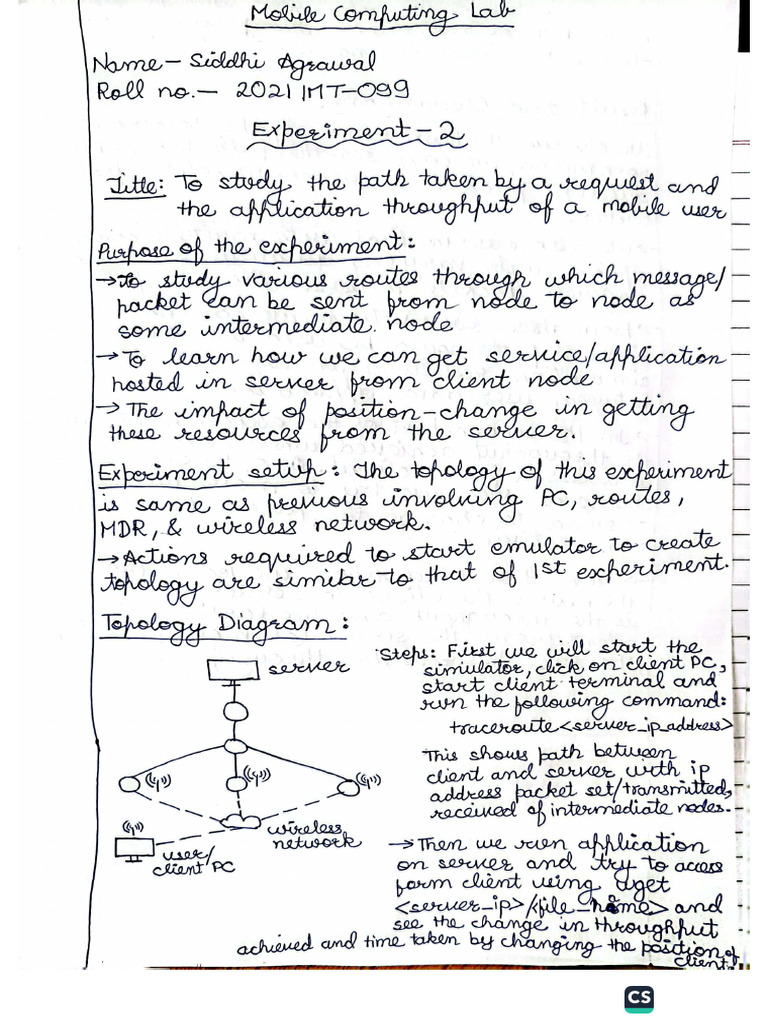 Mobile Computing Lab
Name - Siddhi Agrawal
Roll no. - 2021 IMT-099
Experiment - 2
Title: To study the path taken by a request and
the application throughput of a mobile user
Purpose of the experiment:
→ To study various routes through which message/
packet can be sent from node to node as
some intermediate. node
→ To learn how we can get service/application
hosted in server from client node
→ The impact of position-change in getting
these resources from the server.
Experiment setup: The topology of this experiment
is same as previous involving PC, routes,
MDR, & wireless network.
→ Actions required to start emulator to create
topology are similar to that of 1st experiment.
Topology Diagram:
server
wireless
network
user/
client PC
Steps: First we will start the
simulator, click on client PC,
start client terminal and
run the following command:
traceroute <server_ip_address>
This shows path between
client and server with ip
address packet set/transmitted,
received of intermediate nodes.
→ Then we run application
on server and try to access
form client using wget
<server_ip>/<file_name> and
see the change in throughput
achieved and time taken by changing the position of
client.
CS